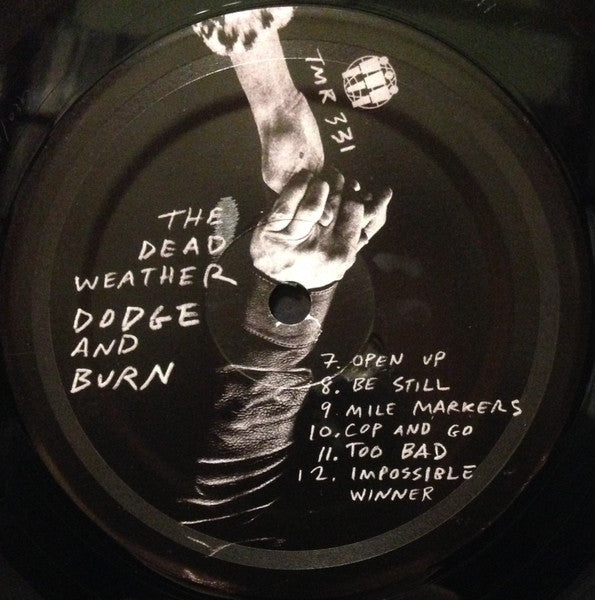 TMR 331
THE
DEAD
WEATHER
DODGE
AND
BURN
7. OPEN UP
8. BE STILL
9. MILE MARKERS
10. COP AND GO
11. TOO BAD
12. IMPOSSIBLE
WINNER